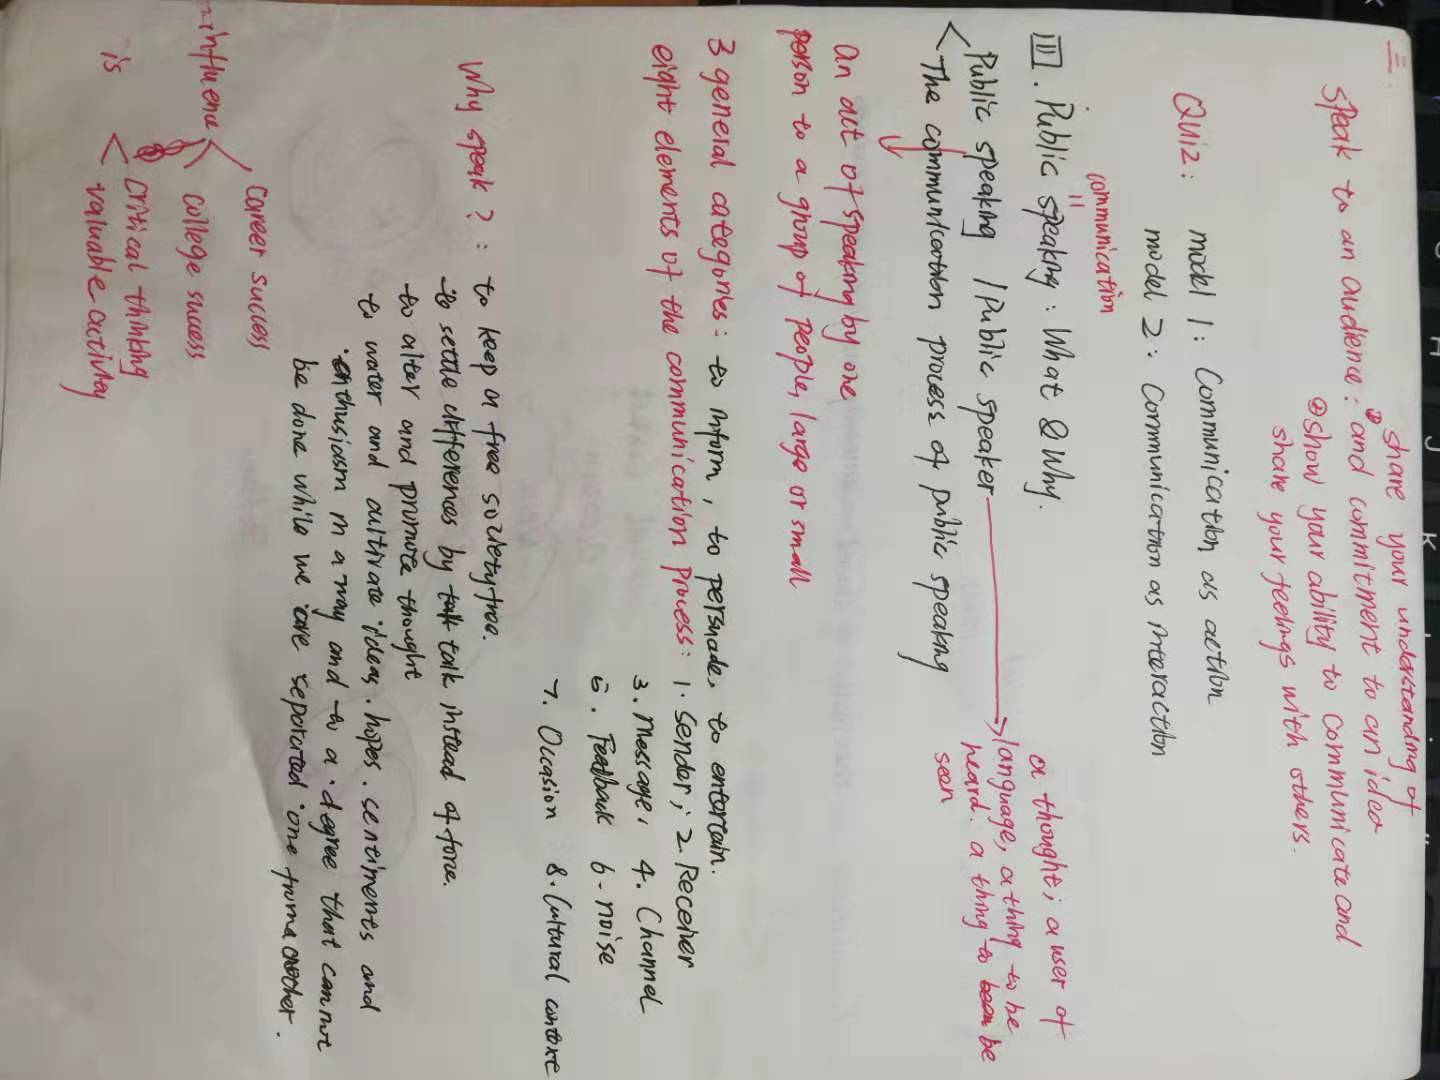 二.
speak to an audience: ① share your understanding of
and commitment to an idea
② show your ability to communicate and
share your feelings with others.
Quiz: model 1: Communication as action
model 2: Communication as interaction
communication
=
III. Public speaking: What & Why.
< Public speaking / Public speaker → a thought; a user of
language, a thing to be
heard. a thing to be
seen
The communication process of public speaking
An act of speaking by one
person to a group of people, large or small
3 general categories: to inform, to persuade, to entertain.
eight elements of the communication process: 1. sender; 2. Receiver
3. message, 4. Channel
5. Feedback 6. noise
7. Occasion 8. Cultural context
Why speak?: to keep a free society free.
to settle differences by talk instead of force.
to alter and promote thought
to water and cultivate ideas. hopes. sentiments and
enthusiasm in a way and to a degree that cannot
be done while we are separated one from another.
influence < career success
college success
is < critical thinking
valuable activity